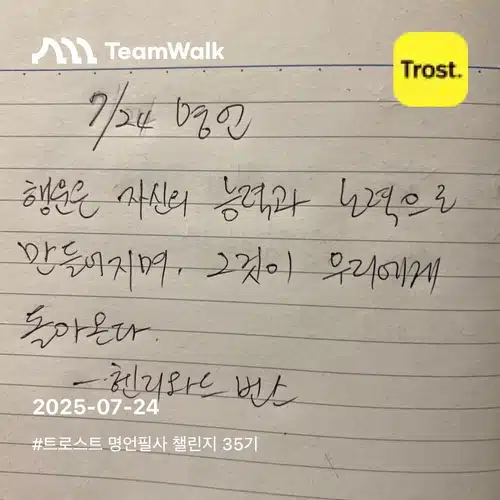 TeamWalk
Trost.
7/24 명언
행운은 자신의 능력과 노력으로
만들어지며, 그것이 우리에게
돌아온다.
- 헨리와드 번스
2025-07-24
#트로스트 명언필사 챌린지 35기